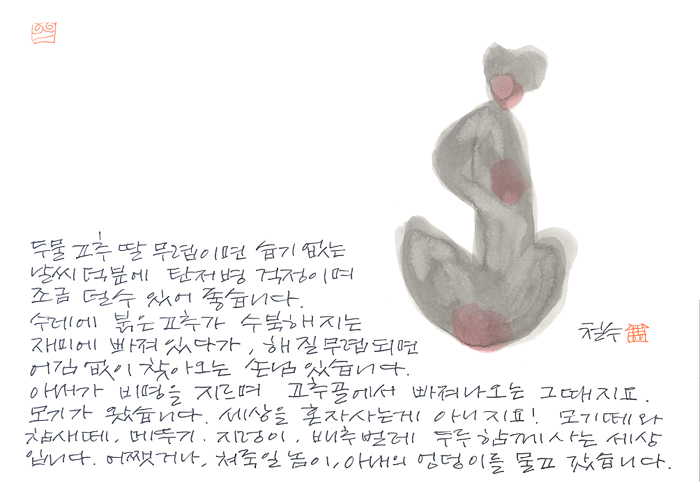 두물 고추 딸 무렵이면 습기 없는
날씨 덕분에 탄저병 걱정이며
조금 덜수 있어 좋습니다.
수레에 붉은 고추가 수북해 지는
재미에 빠져 있다가, 해 질 무렵 되면
어김 없이 찾아오는 손님 있습니다.
아내가 비명을 지르며 고추골에서 빠져나오는 그때지요.
모기가 왔습니다. 세상을 혼자사는게 아니지요! 모기떼와
참새떼, 메뚜기. 지렁이, 배추벌레 두루 함께 사는 세상
입니다. 어쨋거나, 쳐죽일 놈이, 아내의 엉덩이를 물고 갔습니다.
철수